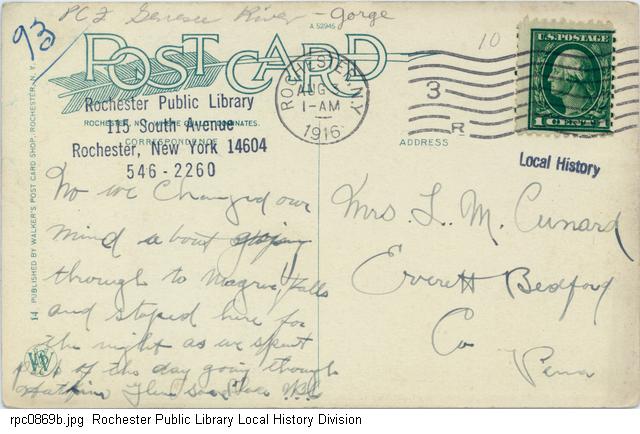 PC2 Genesee River - Gorge
A 52945
93
10
POST CARD
Rochester Public Library
ROCHESTER, N.
115 South Avenue
CORRESPONDENCE
Rochester, New York 14604
546-2260
ROCHESTER, N.Y.
AUG
1-AM
1916
3
R
U.S. POSTAGE
1 CENT 1
ADDRESS
Local History
No we changed our
mind about going
through to Niagria Falls
and stoped here for
the night as we spent
part of the day going though
Watkins Glen
Mrs. L. M. Cunard
Everett Bedford
Co
Penna
14 PUBLISHED BY WALKER'S POST CARD SHOP, ROCHESTER, N. Y.
rpc0869b.jpg Rochester Public Library Local History Division